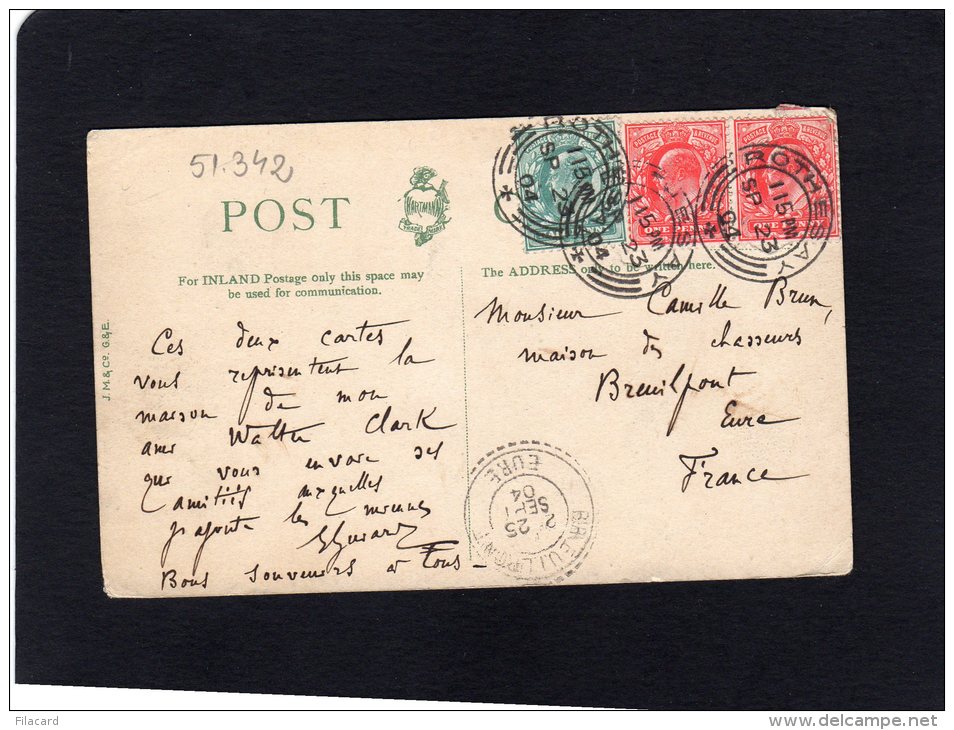 51.342
POST
HARTMANN
TRADE MARK
For INLAND Postage only this space may
be used for communication.
The ADDRESS only to be written here.
J.M.& Co. G.& E.
POSTAGE & REVENUE
ONE PENNY
POSTAGE & REVENUE
ONE PENNY
ROTHESAY
1 15 PM
SP 23
04
ROTHESAY
1 15 PM
SP 23
04
ROTHESAY
1 15 PM
SP 23
04
Ces deux cartes
vous représentent la
maison de mon
ami Walter Clark
que vous envoie ses
amitiés auxquelles
j'ajoute les miennes
Bons souvenirs à tous
Monsieur Camille Brun,
maison des chasseurs
Breuilpont
Eure
France
BREUILPONT
25
SEPT
04
EURE
Filacard
www.delcampe.net